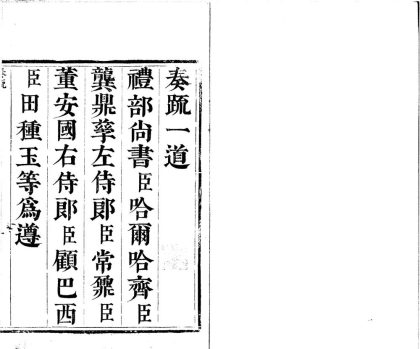 奏疏一道
禮部尙書臣哈爾哈齊臣
龔鼎孳左侍郎臣常鼐臣
董安國右侍郎臣顧巴西
臣田種玉等爲遵